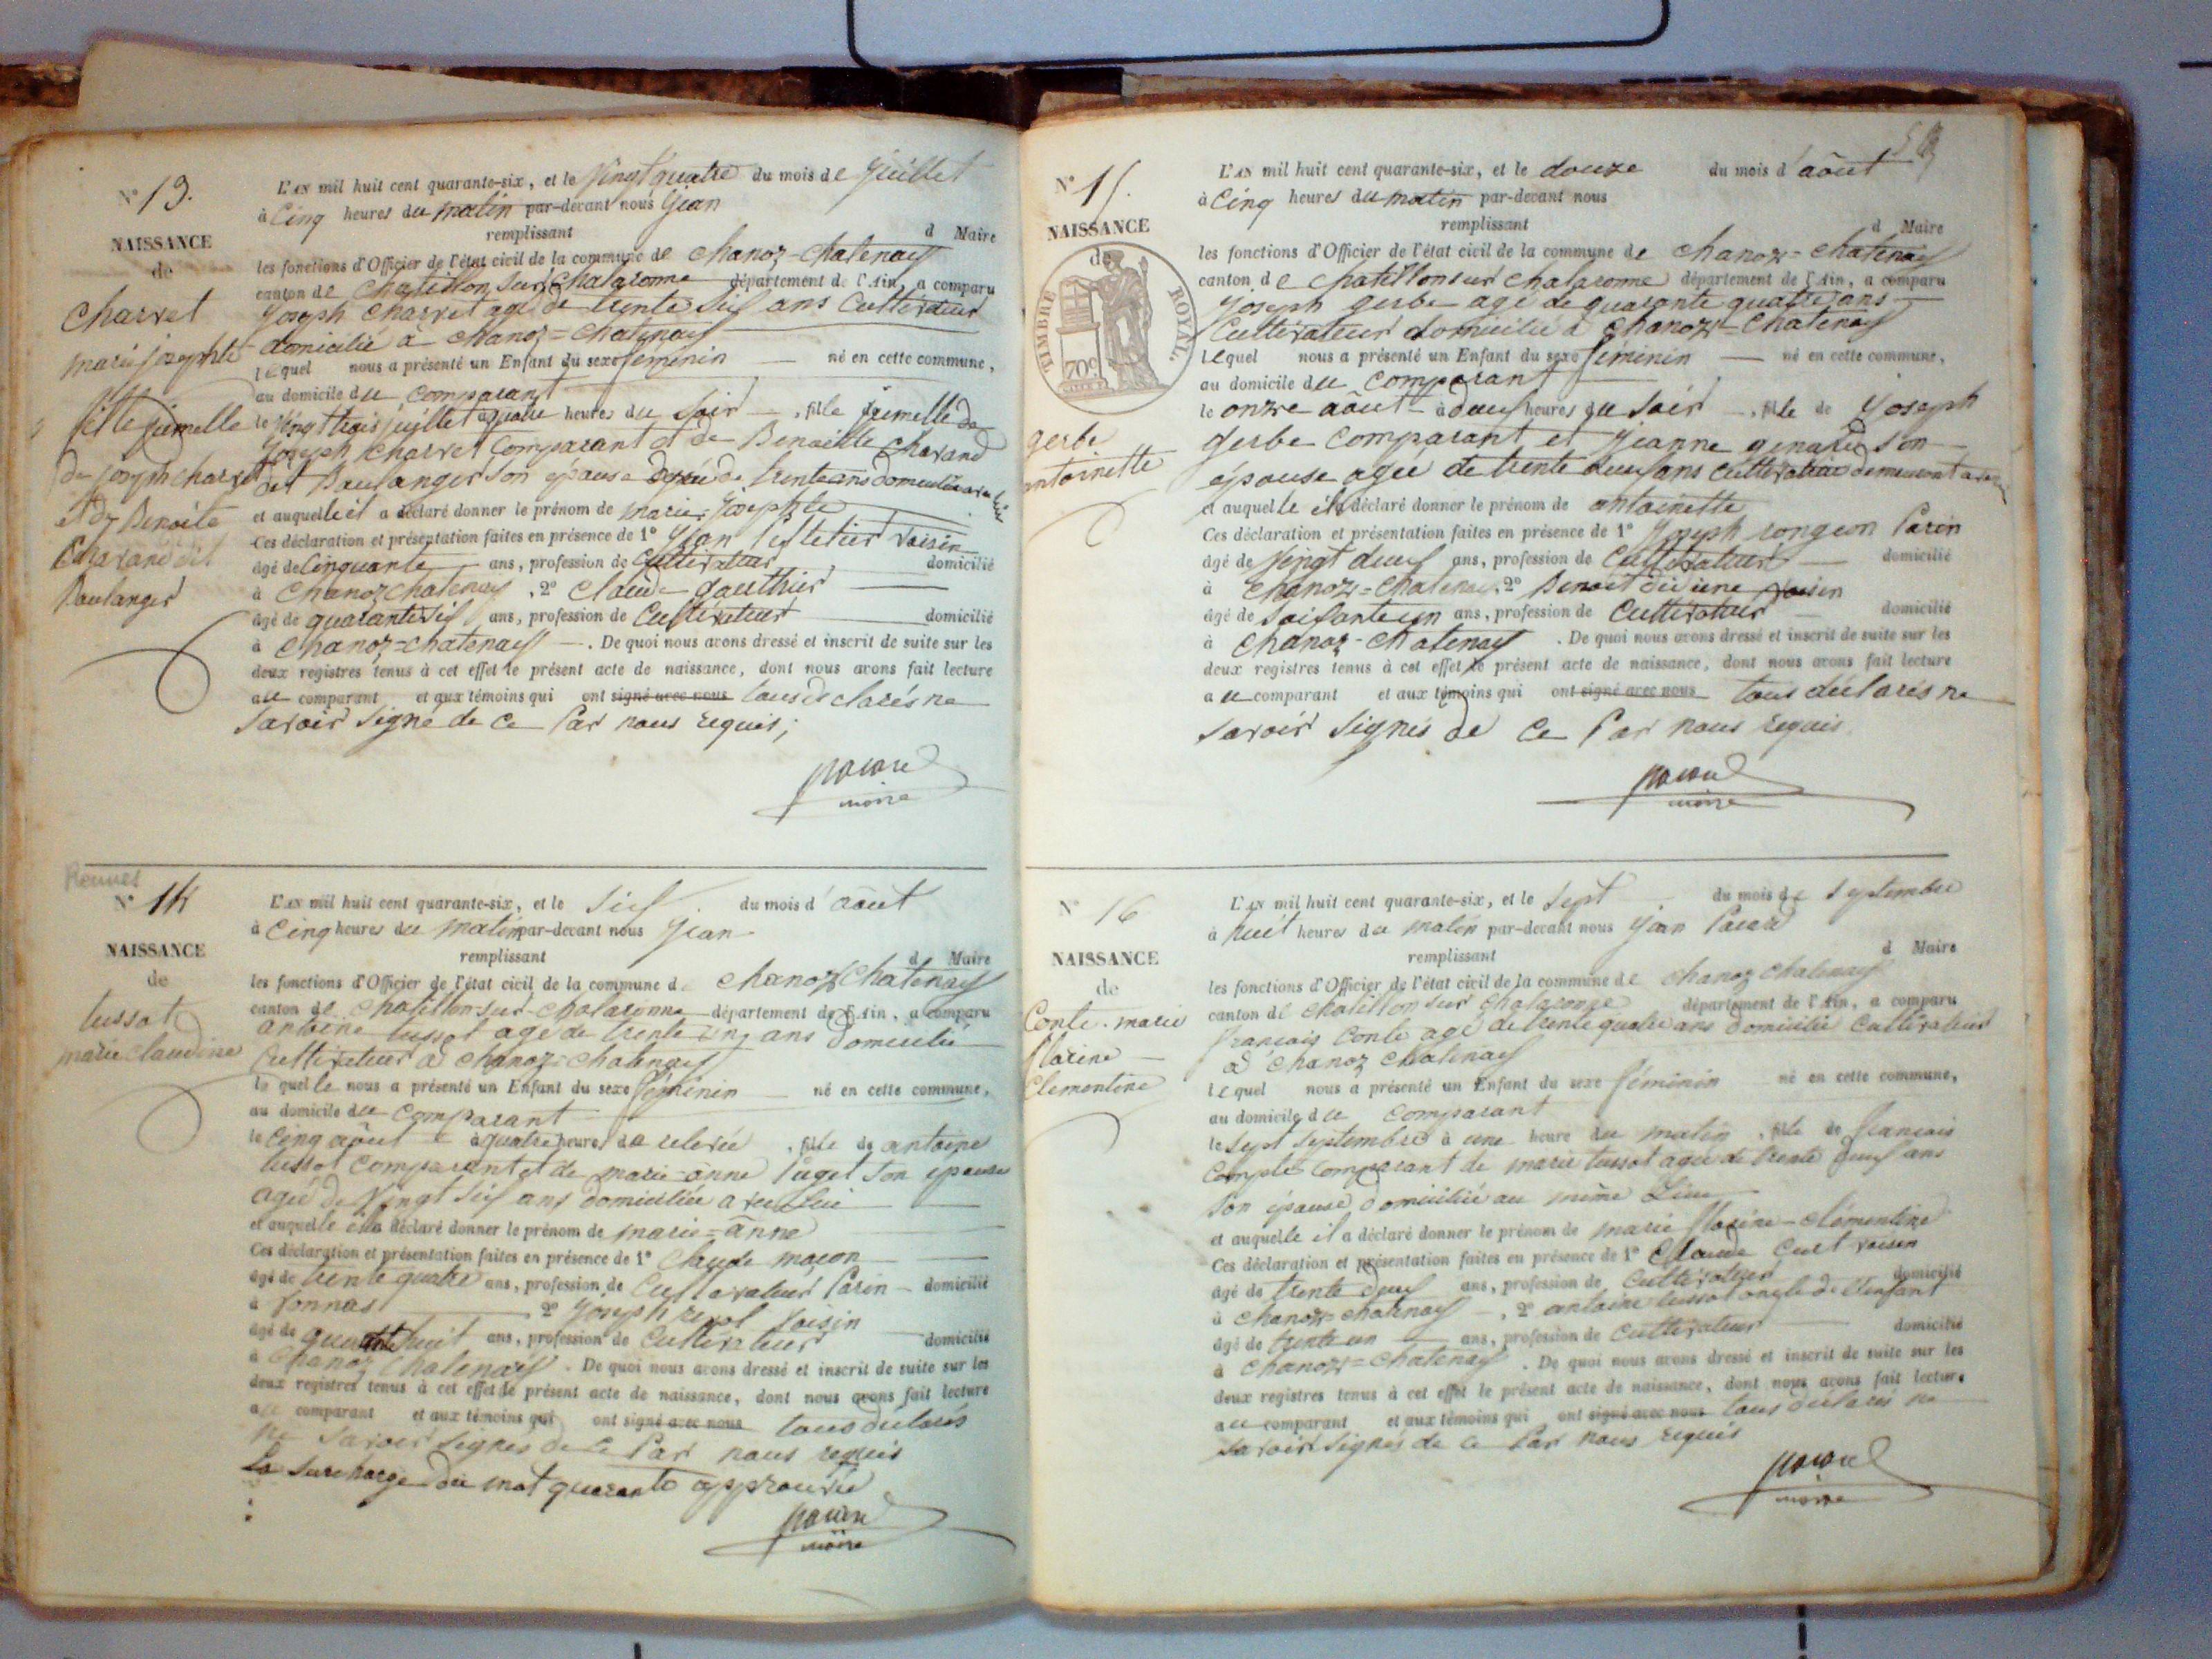 N° 13.
NAISSANCE
de
Charvet
marie josephte
fille jumelle
de joseph charvet
et de Benoite
Charand dit
Boulanger
L'AN mil huit cent quarante-six, et le vingt quatre du mois de juillet
à Cinq heures du matin par-devant nous Jean
remplissant d Maire
les fonctions d'Officier de l'état civil de la commune de chanoz-chatenay
canton de chatillon sur chalaronne département de l'Ain, a comparu
Joseph Charvet agé de trente six ans Cultivateur
domicilié à chanoz=chatenay
lequel nous a présenté un Enfant du sexe féminin né en cette commune,
au domicile du comparant
le vingt trois juillet à quatre heures du soir, fille jumelle de
Joseph Charvet Comparant et de Benoitte Charand
dit Boulanger son épouse agée de trente ans domiciliée avec lui
et auquelle il a déclaré donner le prénom de marie josephte
Ces déclaration et présentation faites en présence de 1° Jean voisin
âgé de cinquante ans, profession de Cultivateur domicilié
à Chanoz chatenay, 2° Claude gauthier
âgé de quarante six ans, profession de Cultivateur domicilié
à chanoz=chatenay. De quoi nous avons dressé et inscrit de suite sur les
deux registres tenus à cet effet le présent acte de naissance, dont nous avons fait lecture
au comparant et aux témoins qui ont signé avec nous tous declarés ne
savoir signé de ce Par nous requis;
pacard
maire
N° 14
NAISSANCE
de
tussot
marie claudine
L'AN mil huit cent quarante-six, et le six du mois d'août
à Cinq heures du matin par-devant nous Jean
remplissant d Maire
les fonctions d'Officier de l'état civil de la commune d chanoz Chatenay
canton de chatillon-sur-chalaronne département de l'Ain, a comparu
antoine tussot agé de trente cinq ans domicilié
Cultivateur à chanoz=chatenay
le quelle nous a présenté un Enfant du sexe féminin né en cette commune,
au domicile du comparant
le cinq août à quatre heures de relevée, fille de antoine
tussot comparant et de marie=anne Puget son épouse
agée de vingt six ans domiciliée avec lui
et auquelle il a déclaré donner le prénom de marie=anne
Ces déclaration et présentation faites en présence de 1° Claude maçon
âgé de trente quatre ans, profession de Cultivateur Parin domicilié
à vonnas 2° Joseph voisin
âgé de quarante huit ans, profession de Cultivateur domicilié
à Chanoz Chatenay. De quoi nous avons dressé et inscrit de suite sur les
deux registres tenus à cet effet le présent acte de naissance, dont nous avons fait lecture
au comparant et aux témoins qui ont signé avec nous tous déclarés
ne savoir signés de ce Par nous requis
La surcharge du mot quarante approuvée
pacard
maire
N° 15.
NAISSANCE
de
TIMBRE ROYAL.
70c
gerbe
antoinette
L'AN mil huit cent quarante-six, et le douze du mois d'août
à Cinq heures du matin par-devant nous
remplissant d Maire
les fonctions d'Officier de l'état civil de la commune de chanoz=chatenay
canton de chatillon sur chalaronne département de l'Ain, a comparu
Joseph gerbe agé de quarante quatre ans
Cultivateur domicilié à Chanoz=Chatenay
lequel nous a présenté un Enfant du sexe féminin né en cette commune,
au domicile du comparant
le onze août à deux heures du soir, fille de Joseph
gerbe comparant et Jeanne son
épouse agée de trente deux ans
et auquelle il a déclaré donner le prénom de antoinette
Ces déclaration et présentation faites en présence de 1° Joseph rongeon Parin
âgé de vingt deux ans, profession de Cultivateur domicilié
à Chanoz=Chatenay. 2° Benoit voisin
âgé de soisante un ans, profession de Cultivateur domicilié
à Chanoz-chatenay. De quoi nous avons dressé et inscrit de suite sur les
deux registres tenus à cet effet le présent acte de naissance, dont nous avons fait lecture
au comparant et aux témoins qui ont signé avec nous tous déclarés ne
savoir signés de ce Par nous requis
pacard
maire
N° 16
NAISSANCE
de
Conte. marie
florine
Clementine
L'AN mil huit cent quarante-six, et le sept du mois de septembre
à huit heures du matin par-devant nous jean Pacard
remplissant d Maire
les fonctions d'Officier de l'état civil de la commune de chanoz chatenay
canton de chatillon sur chalaronne département de l'Ain, a comparu
français Conte agé de trente quatre ans domicilié cultivateur
à chanoz chatenay
lequel nous a présenté un Enfant du sexe féminin né en cette commune,
au domicile du comparant
le sept septembre à une heure du matin, fille de francais
Compte Comparant de marie tussot agée de trente deux ans
son épouse domiciliée au même Lieu
et auquelle il a déclaré donner le prénom de marie florine-clémentine
Ces déclaration et présentation faites en présence de 1° Claude Curt voisin
âgé de trente deux ans, profession de Cultivateur domicilié
à chanoz=chatenay, 2° antoine tussot oncle de l'enfant
âgé de trente un ans, profession de Cultivateur domicilié
à Chanoz=chatenay. De quoi nous avons dressé et inscrit de suite sur les
deux registres tenus à cet effet le présent acte de naissance, dont nous avons fait lecture
au comparant et aux témoins qui ont signé avec nous tous déclarés ne
savoir signés de ce Par nous requis
pacard
maire